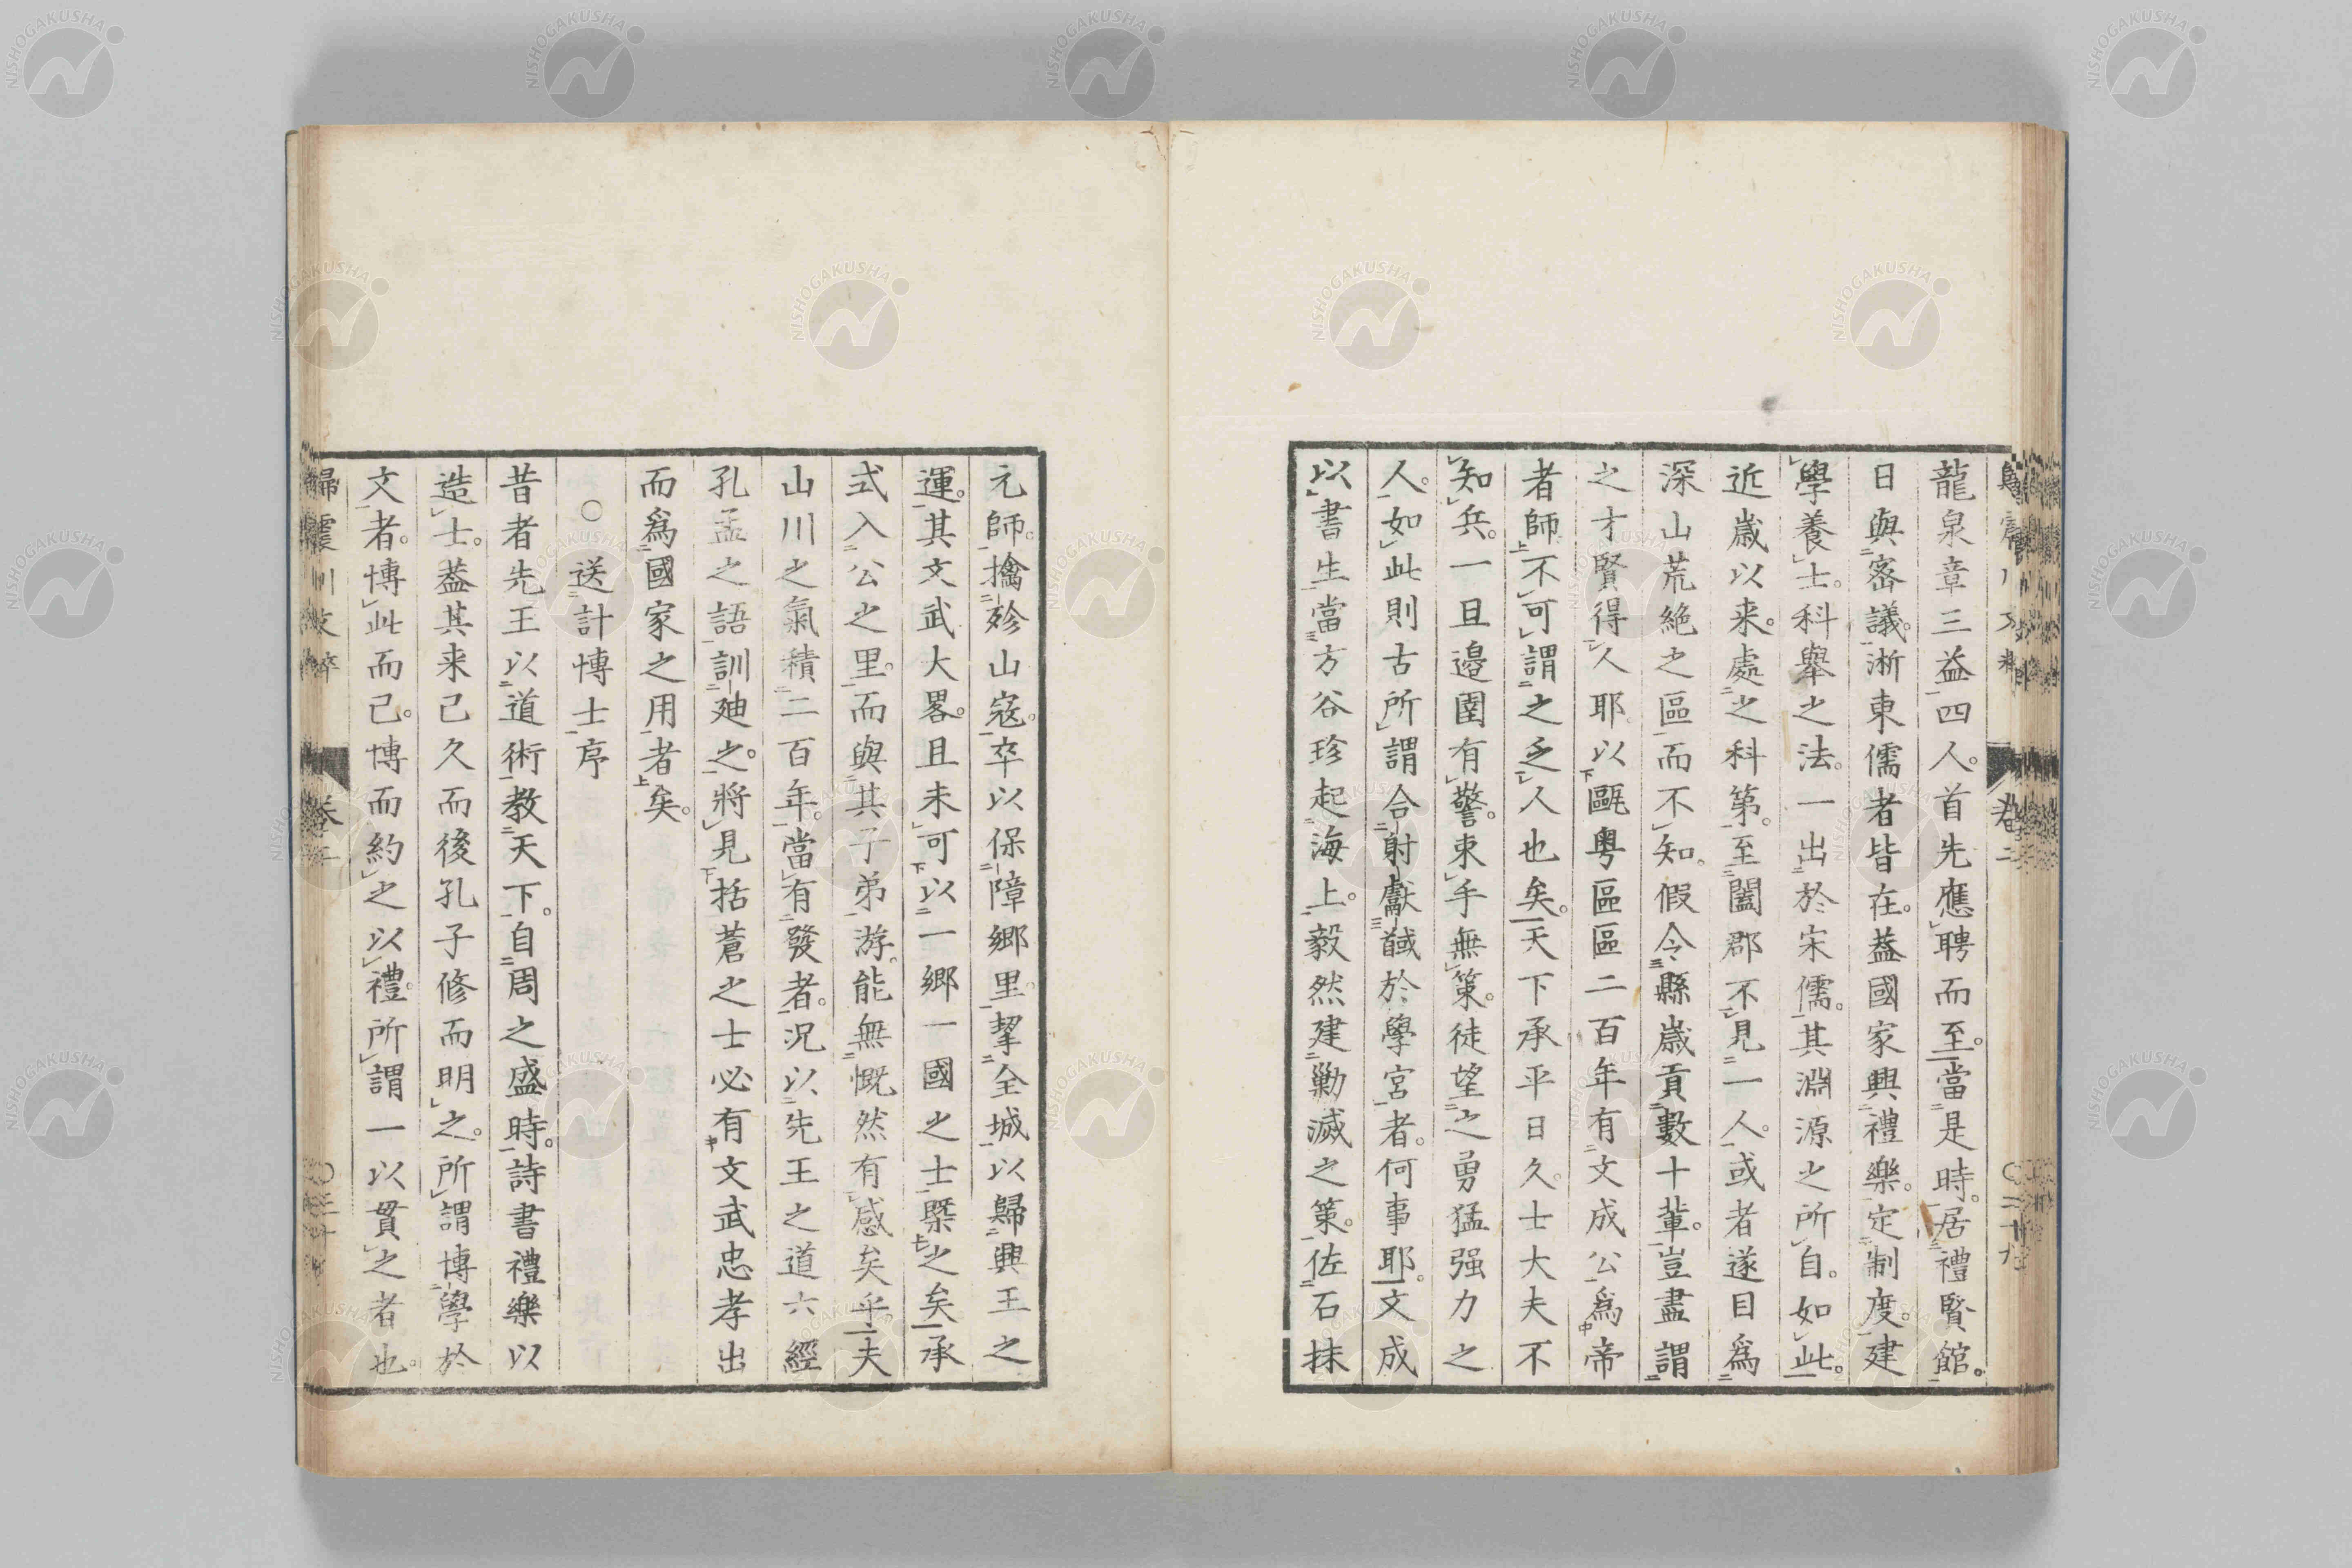 龍泉章三益四人。首先應聘而至。當是時。居禮賢館。
日與密議。淅東儒者皆在。葢國家興禮樂。定制度。建
學養士。科舉之法。一出於宋儒。其淵源之所自。如此。
近歲以来。處之科第。至闔郡不見一人。或者遂目爲
深山荒絶之區而不知。假令縣歲貢數十輩。豈盡謂
之才賢得人耶。以甌粤區區二百年有文成公爲帝
者師不可謂之乏人也矣。天下承平日久。士大夫不
知兵。一旦邉圉有警。束手無策。徒望之勇猛强力之
人。如此則古所謂合射獻馘於學宮者。何事耶。文成
以書生當方谷珍起海上。毅然建勦滅之策。佐石抹
元師。擒殄山寇。卒以保障郷里。挈全城以歸興王之
運。其文武大畧。且未可以一郷一國之士槩之矣。承
式入公之里。而與其子弟游。能無慨然有感矣乎。夫
山川之氣積二百年。當有發者。况以先王之道六經
孔孟之語訓廸之。將見括蒼之士必有文武忠孝出
而爲國家之用者矣。
○送計博士序
昔者先王以道術教天下。自周之盛時。詩書禮樂以
造士。葢其来已久而後孔子修而明之。所謂博學於
文者。博此而已。博而約之以禮。所謂一以貫之者也。
歸震川文粹 卷二
NISHOGAKUSHA